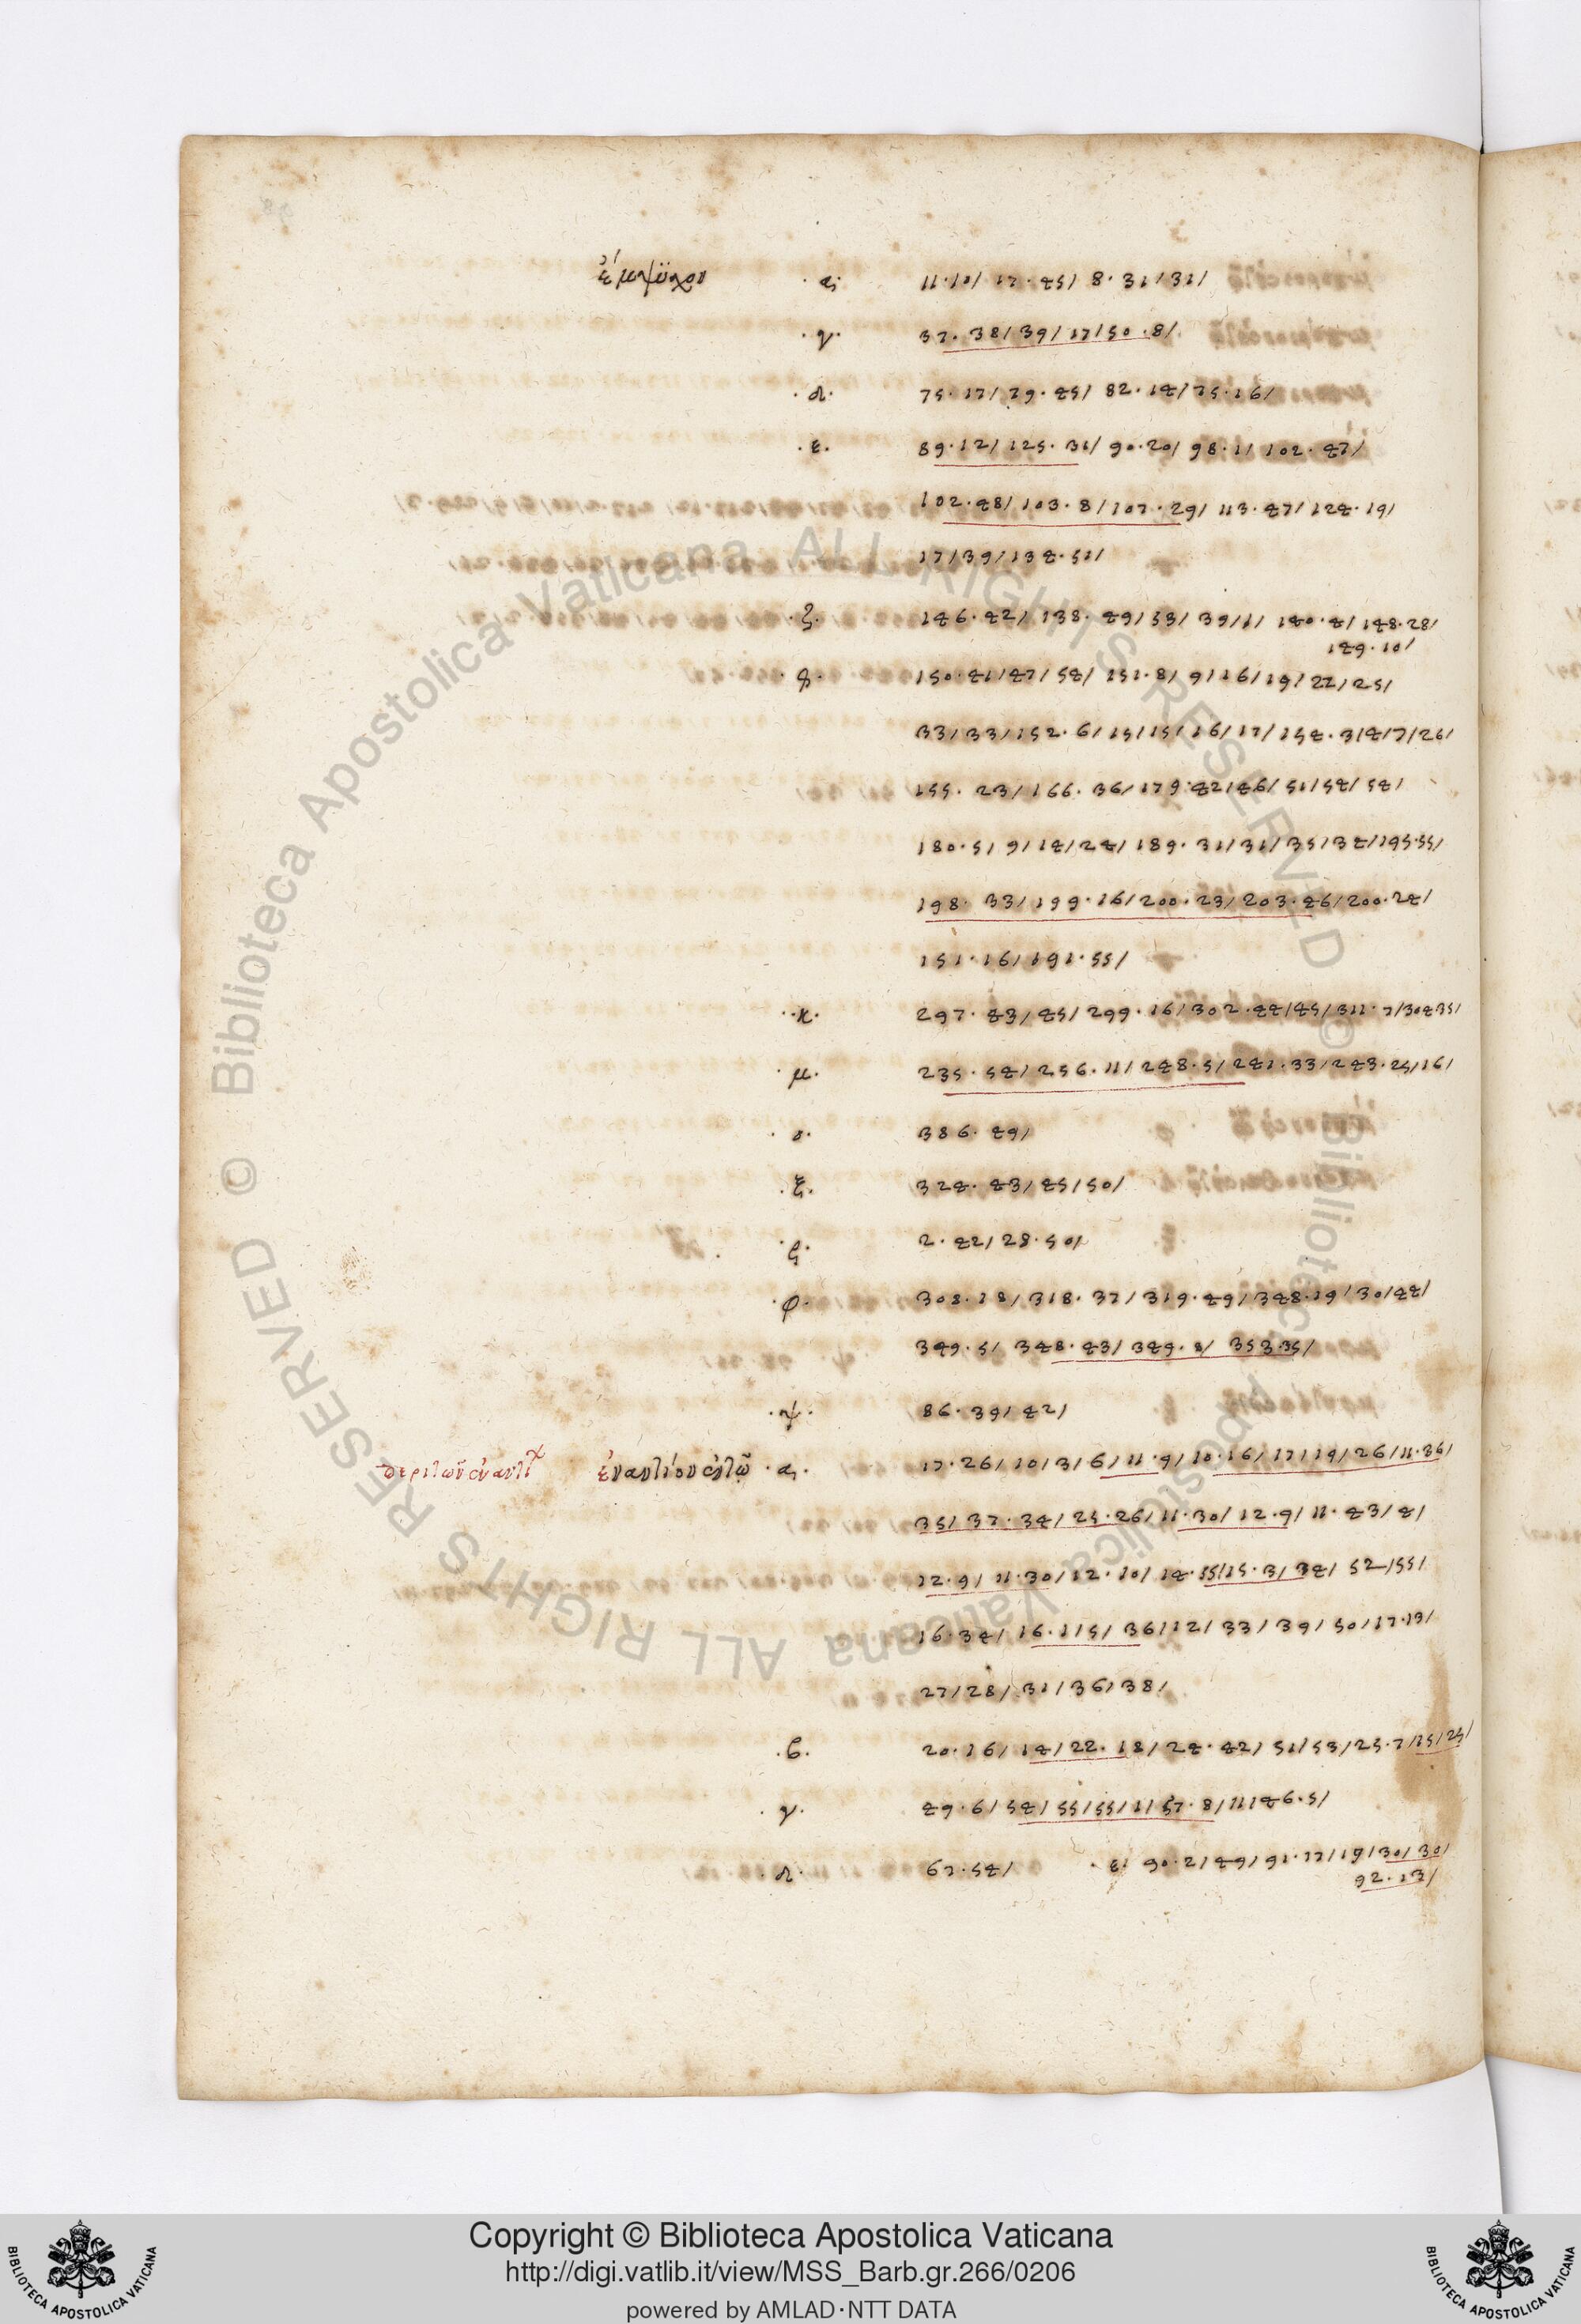 ἐμψύχου · α · 11·10/ 17·45/ 8·31/31/
· γ · 37·38/39/17/50·8/
· δ · 75·17/79·45/ 82·14/75·16/
· ε · 89·12/125·31/90·20/98·1/102·47/
102·48/103·8/107·29/113·47/124·19/
17/39/134·51/
· ζ · 146·42/138·49/53/39/1/140·4/148·28/
149·10/
150·41/47/54/151·8/9/16/19/22/25/
33/33/152·6/15/15/16/17/154·3/4/7/26/
155·23/166·36/179·42/46/51/54/54/
180·5/9/14/24/189·31/31/35/34/195·55/
198·33/199·16/200·23/203·46/200·24/
151·16/191·55/
· κ · 297·43/45/299·16/302·44/45/311·7/304·35/
· μ · 235·54/256·11/248·5/241·33/243·25/16/
386·49/
· ξ · 324·43/45/50/
2·42/28·50/
· φ · 308·18/318·37/319·49/348·19/30/44/
349·5/348·43/349·8/353·35/
· ψ · 86·39/42/
περὶ τῶν ἐναντί ἐναντίον ἐν τῷ · α · 17·26/10/3/6/11·9/10·16/17/19/26/11·36/
35/37·34/25·26/11·30/12·9/11·43/4/
12·9/11·30/12·10/14·55/15·3/34/52/55/
16·34/16·1/5/36/12/33/39/50/17·13/
27/28/31/36/38/
· β · 20·16/14/22·18/24·42/51/53/25·7/15/25/
· γ · 49·6/54/55/55/1/57·8/11/46·5/
· δ · 67·54/ · ε · 90·2/49/91·17/19/30/30/
92·13/
Copyright © Biblioteca Apostolica Vaticana
http://digi.vatlib.it/view/MSS_Barb.gr.266/0206
powered by AMLAD·NTT DATA